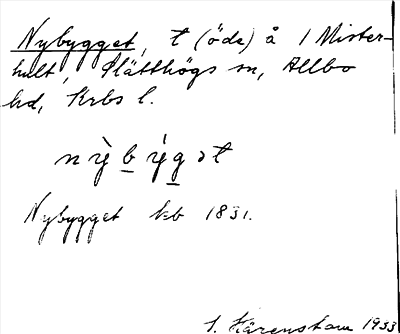 Nybygget, t (öde) å 1 Mister-
hult, Slätthögs sn, Allbo
hd, Krbs l.
n ỳ b ý g ət
Nybygget kb 1831.
S. Härenstam 1933